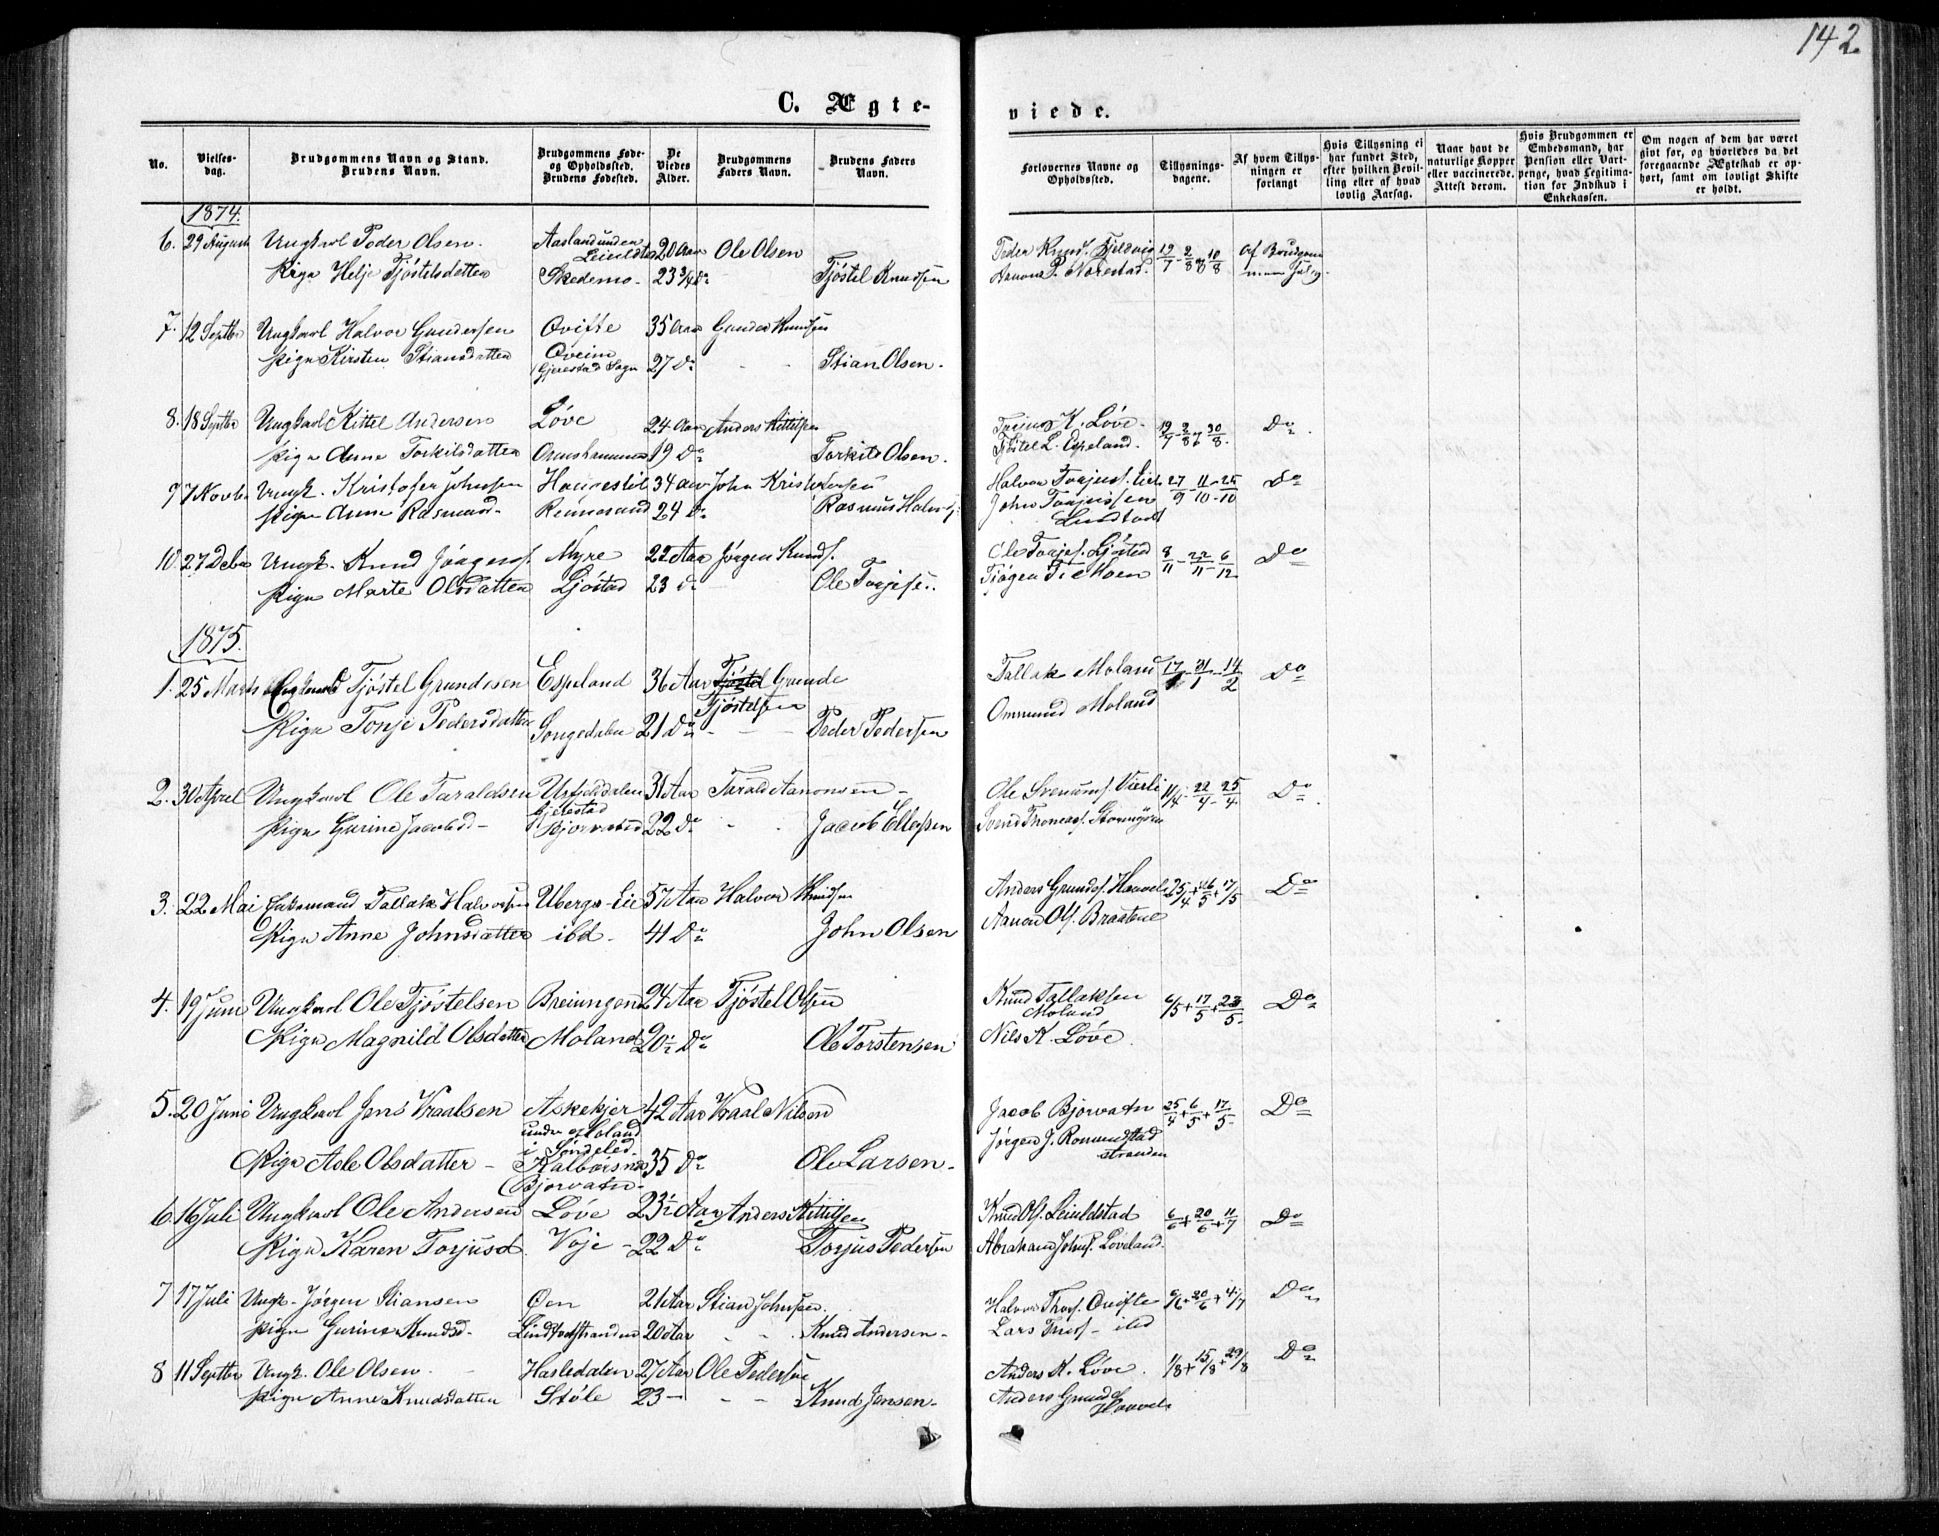 142
C. Ægte-
viede.
No.
Vielses-
dag.
Brudgommens Navn og Stand.
Brudens Navn.
Brudgommens Føde-
og Opholdssted.
Brudens Fødested.
De
Viedes
Alder.
Brudgommens
Faders Navn.
Brudens Faders
Navn.
Forlovernes Navne og
Opholdssted.
Tillysnings-
dagene.
Af hvem Tillys-
ningen er
forlangt
Hvis Tillysning ei
har fundet Sted,
efter hvilken Bevil-
ling eller af hvad
lovlig Aarsag.
Naar havt de
naturlige Kopper
eller vaccinerede.
Attest derom.
Hvis Brudgommen er
Embedsmand, har
Pension eller Vart-
penge, hvad Legitima-
tion for Indskud i
Enkekassen.
Om nogen af dem har været
gift før, og hvorledes da det
foregaaende Ægteskab er op-
hørt, samt om lovligt Skifte
er holdt.
1874.
6. 29 August Ungkarl Peder Olsen. Aasland under 20 Aar Ole Olsen
Pige Helje Tjøstelsdatter Skedemo - 23 3/4 Do Tjøstel Knudsen
19/7 - 2/8 og 10/8
7. 12 Septbr Ungkarl Halvor Gundersen Ovifte 35 Aar Gunder Knudsen
Pige Kirsten Stiansdatter Oveim 27 Do - - Stian Olsen.
Gjerestad Sogn
8. 18 Septbr Ungkarl Kittel Andersen Løve 24 Aar Anders Kittilsen K. Løve - 19/7 - 2/8 og 30/8. Do.
Pige Anne Torkilsdatter 19 Do Torkild Olsen. Tjøstel L. Espeland.
9 7 Novbr Ungk. Kristofer Johnsen 34 Aar John Kristofersen Halvor Torjuss. Lie 27/9 - 11/10 - 25/10 Do
Pige Anne Rasmusd. 24 Do John Torjussen
10 27 Debr Ungk. Knud Jørgens. Myre 22 Aar Jørgen Knuds. Ole Torjes. Ljøstad 8/11 - 22/11 - 6/12 Do
Pige Marte Olsdatter Ljøstad 23 Do Ole Torjesen. Moen
1875.
1. 25 Marts Tjøstel Grundesen Espeland 36 Aar Tjøstel Grunde Tallak Moland 17/1 - 31/1 - 14/2 Do
Tjøstelsen
Pige Tonje Pedersdatter Songedalen 21 Do - - - Peder Pedersen Ommund Moland
2. 30 April Ungkarl Ole Taraldsen 31 Aar Tarald Aanonsen - Ole Svenums. Vierli 11/4 - 22/4 - 25/4. Do.
Gjerestad
Pige Gurine Jacobsd - Bjorvatn 22 Do - - Jacob Ellefsen Svend Thomass.
3. 22 Mai Enkemand Tallak Halvorsen Ubergs-Lie 57 Aar Halvor Knudsen Anders Grundes. Haavel 25/4 + 16/5 + 17/5 Do
Pige Anne Johnsdatter ibd. 41 Do John Olsen Aanon Ols. Braatene
4. 19 Juni Ungkarl Ole Tjøstelsen Breiungen 24 Aar Tjøstel Olsen Knud Tallaksen 6/5 + 17/5 + 23/5. Do
Moland
Pige Magnild Olsdatter Moland 20½ Do Ole Torstensen Nils K. Løve
5. 20 Juni Ungkarl Jens Vraalsen Askekjer 42 Aar Vraal Nilsen Jacob Bjorvatn 25/4 + 6/5 + 17/5. Do
under Moland
i Søndeled.
Pige Asle Olsdatter - 35 Do Ole Larsen. Jørgen J. Romundstad
Bjorvatn. stranden
6. 16 Juli Ungkarl Ole Andersen Løve 23½ Aar Anders Kittilsen Knud Ols. Leiuldstad 6/6 + 20/6 + 11/7 Do
Pige Karen Torjusd. Voje - 22 Do Torjus Pedersen Abraham Johns. Løveland.
7 17 Juli Ungk. Jørgen Stiansen Øen 21 Aar Stian Johnsen. Halvor Thors. Ovifte 6/6 + 20/6 + 4/7 Do
Pige Gurine Knudsd. Lindtvetstranden 20 Aar - - Knud Andersen - Lars Thors - ibd
8 11 Septbr Ungk. Ole Olsen. Hasledalen 27 Aar Ole Pedersen Anders K. Løve. 1/8 + 15/8 + 29/8 Do
Pige Anne Knudsdatter Støle 23 - - - Knud Jensen. Anders Grundes
Haavel.